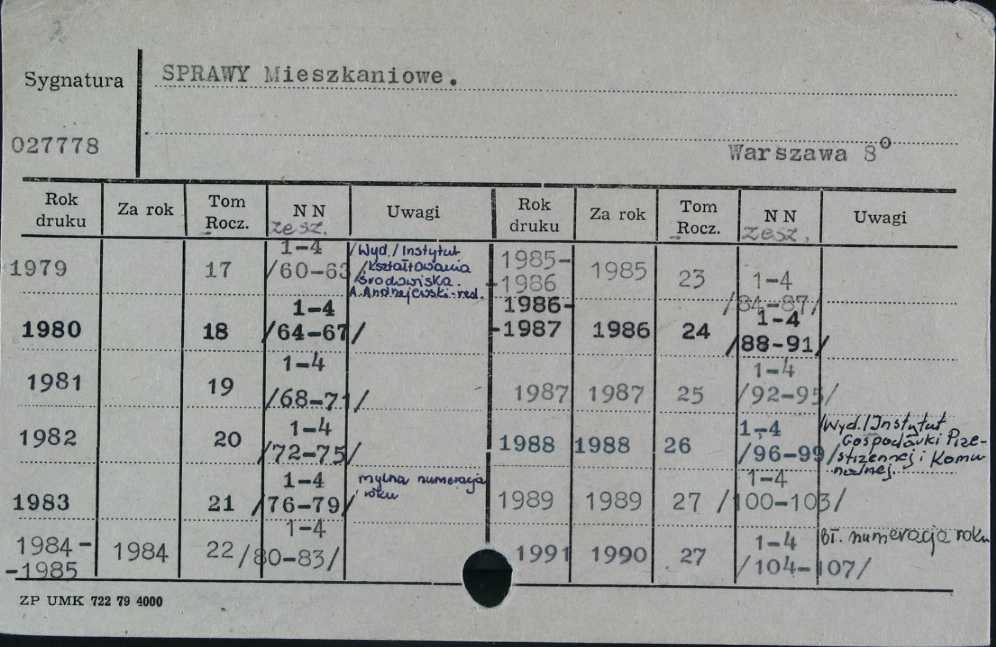 Sygnatura
SPRAWY Mieszkaniowe.
027778
Warszawa 8°
Rok druku Za rok Tom Rocz. NN zesz. Uwagi Rok druku Za rok Tom Rocz. NN zesz. Uwagi
1979 17 1-4 /60-63/ /Wyd./ Instytut
kształtowania
środowiska.
A. Andrzejewski-red.
1985-
-1986 1985 23 1-4
/84-87/
1980 18 1-4
/64-67/
1986-
-1987 1986 24 1-4
/88-91/
1981 19 1-4
/68-71/
1987 1987 25 1-4
/92-95/
1982 20 1-4
/72-75/
1988 1988 26 1-4
/96-99/ /Wyd./ Instytut
Gospodarki Prze-
strzennej i Komu
nalnej.
1983 21 1-4
/76-79/ mylna numeracja
roku
1989 1989 27 1-4
/100-103/
1984-
-1985 1984 22 1-4
/80-83/
1991 1990 27 1-4
/104-107/ bł. numeracja roku
ZP UMK 722 79 4000